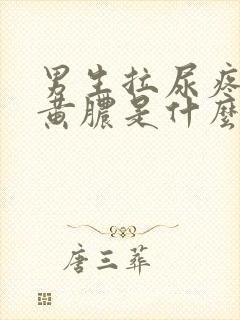 男生拉尿疼
黄膿是什麼
唐三葬